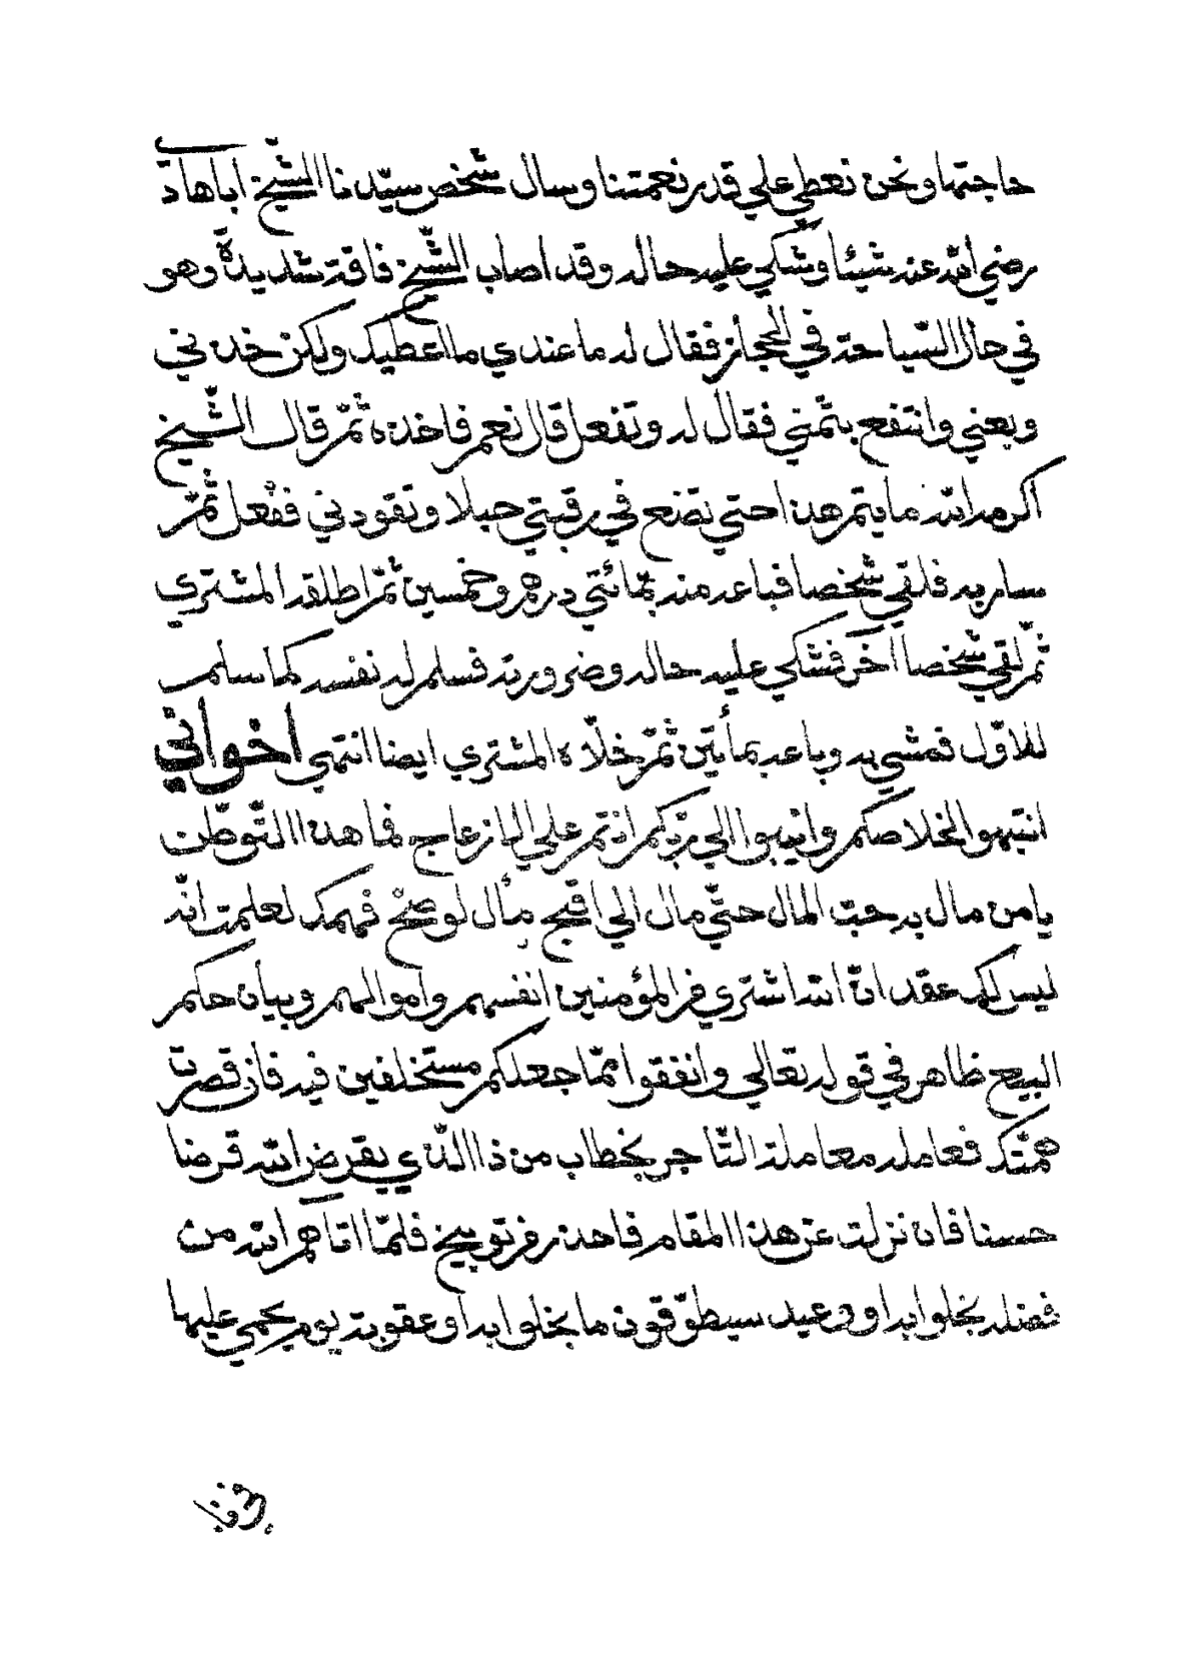 حاجتها ونحن نعطي علي قدر نعمتنا وسال شخص سيّدنا الشّيخ اباهادي
رضي الله عنه شيئا وشكي عليه حاله وقد اصاب الشّيخ فاقة شديدة وهو
في حال السّياحة في الحجاز فقال له ما عندي ما اعطيك ولكن خدني
وبعني وانتفع بثمني فقال له وتفعل قال نعم فاخده ثمّ قال الشّيخ
اكرمه الله ما يتم هدا حتي تضع في رقبتي حبلا وتقودني ففعل ثمّ
سار به فلقي شخصا فباعه منه بمائتي درهم وخمسين ثمّ اطلقه المشتري
ثمّ لقي شخصا آخر فشكي عليه حاله وضرورته فسلم له نفسه كما سلم
للاوّل فمشي به وباعه بمأتين ثمّ خلّاه المشتري ايضا انتهي اخواني
انتبهوا لخلاصكم وانيبوا الي ربّكم انتم علي انزعاج فما هدا التّوطن
يا من مال به حبّ المال حتّي مال الي اقبح مأل لو صحّ فهمك لعلمت انّه
ليس لك عقد انّ الله اشتري من المؤمنين انفسهم واموالهم وبيان حكم
البيع ظاهر في قوله تعالي وانفقوا ممّا جعلكم مستخلفين فيه فان قصرت
همّتك فعامله معاملة التّاجر بخطاب من ذا الّذي يقرض الله قرضا
حسنا فان نزلت عن هدا المقام فاحدر من توبيخ فلمّا اتاهم الله من
فضله بخلوا به او وعيد سيطوّقون ما بخلوا به او عقوبة يوم يحمي عليها